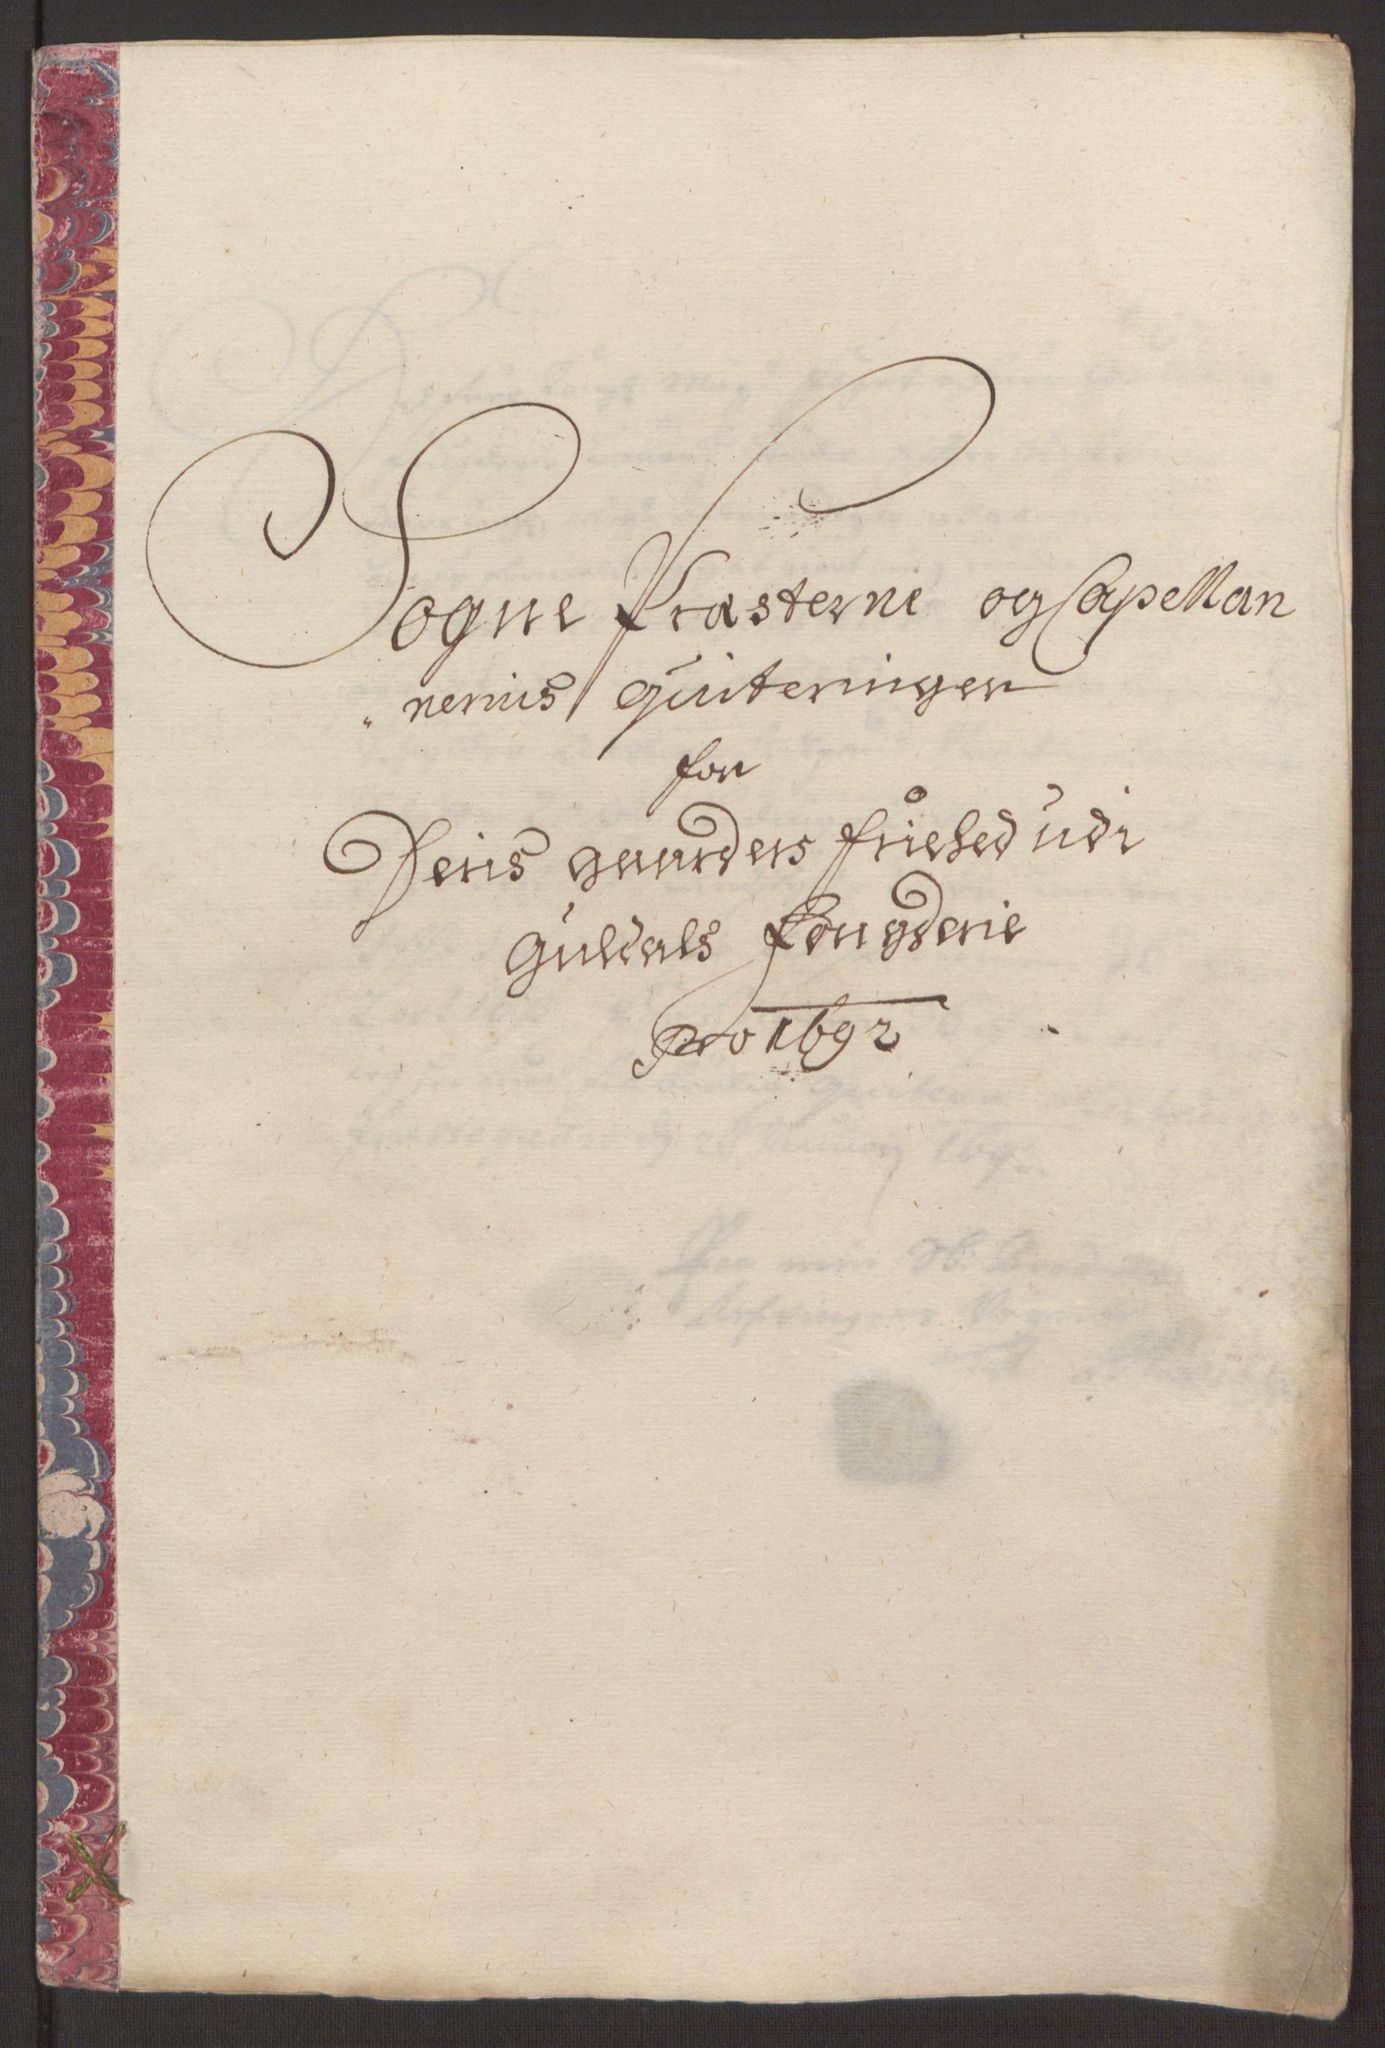 Sogne Præsterne og Capellan
nernis Quiteringer
for
Deris gaarders friehed udi
Guldals fougderie
Pro 1692